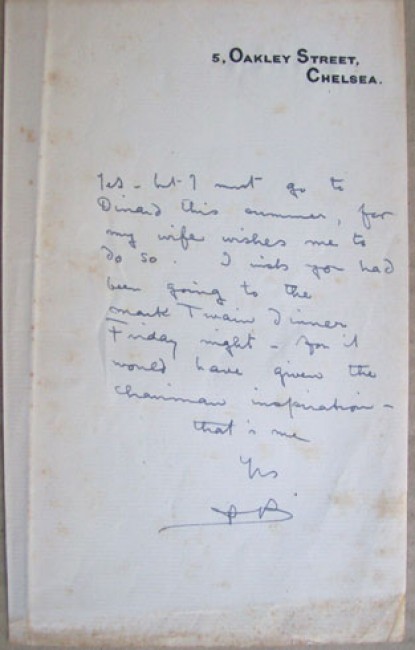 5, OAKLEY STREET,
CHELSEA.
Yes - but I must go to
Dinard this summer, for
my wife wishes me to
do so. I wish you had
been going to the
Mark Twain Dinner
Friday night - you'd
would have given the
chairman inspiration -
that's me
Yrs